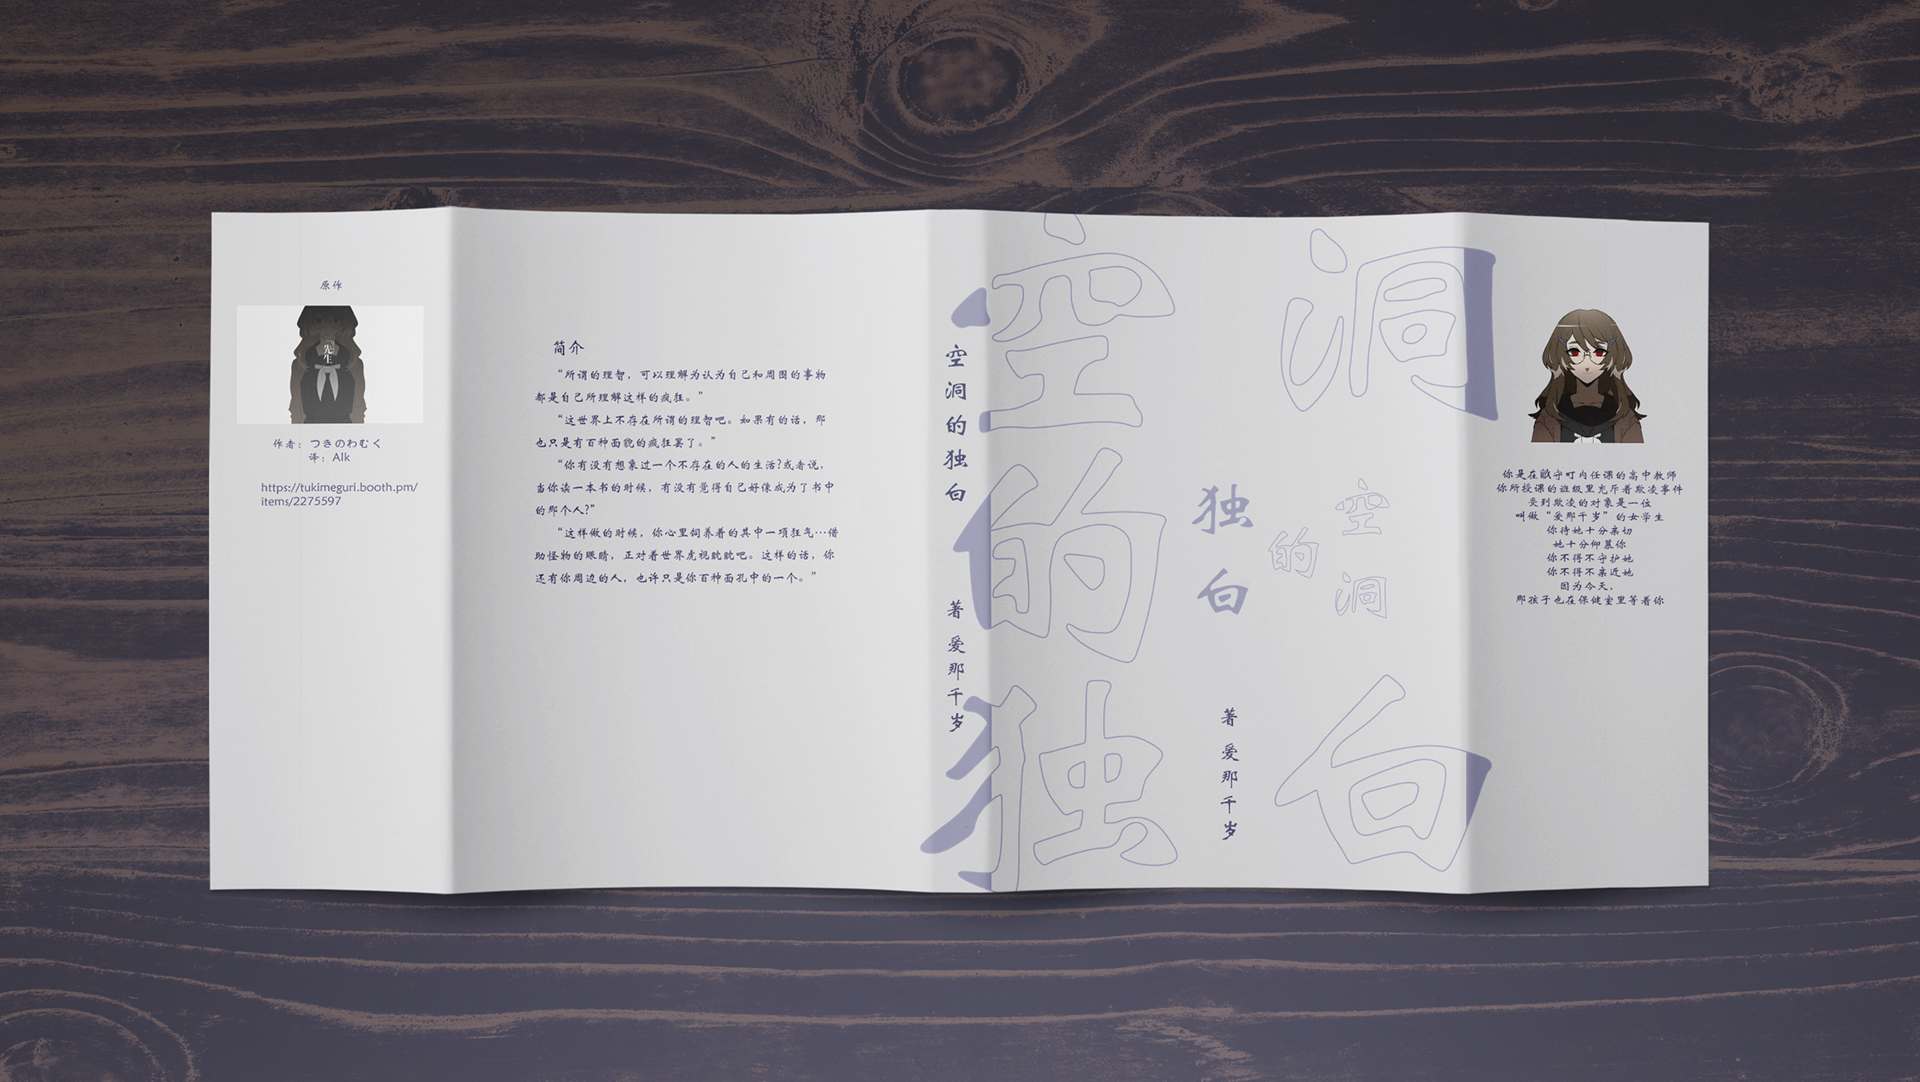 原作
先生
作者：つきのわむく
译：Alk
https://tukimeguri.booth.pm/
items/2275597
简介
“所谓的理智，可以理解为认为自己和周围的事物
都是自己所理解这样的疯狂。”
“这世界上不存在所谓的理智吧。如果有的话，那
也只是有百种面貌的疯狂罢了。”
“你有没有想象过一个不存在的人的生活？或者说，
当你读一本书的时候，有没有觉得自己好像成为了书中
的那个人？”
“这样做的时候，你心里饲养着的其中一项狂气…借
助怪物的眼睛，正对着世界虎视眈眈吧。这样的话，你
还有你周边的人，也许只是你百种面孔中的一个。”
空洞的独白
著 爱那千岁
空洞
的
独白
空洞
的
独白
著 爱那千岁
你是在畝守町内任课的高中教师
你所授课的班级里充斥着欺凌事件
受到欺凌的对象是一位
叫做“爱那千岁”的女学生
你待她十分亲切
她十分仰慕你
你不得不守护她
你不得不亲近她
因为今天，
那孩子也在保健室里等着你